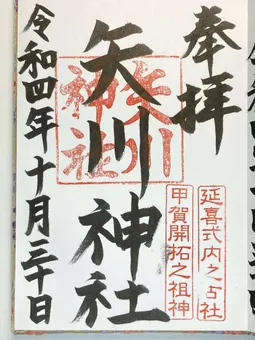 奉拝
延喜式内之古社
甲賀開拓之祖神
矢川神社
矢川神社
令和四年十月三十日